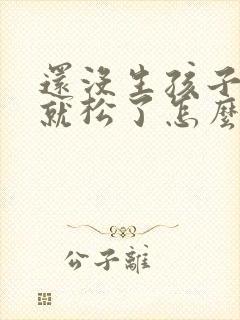 還沒生孩子
就松了怎麼
公子離